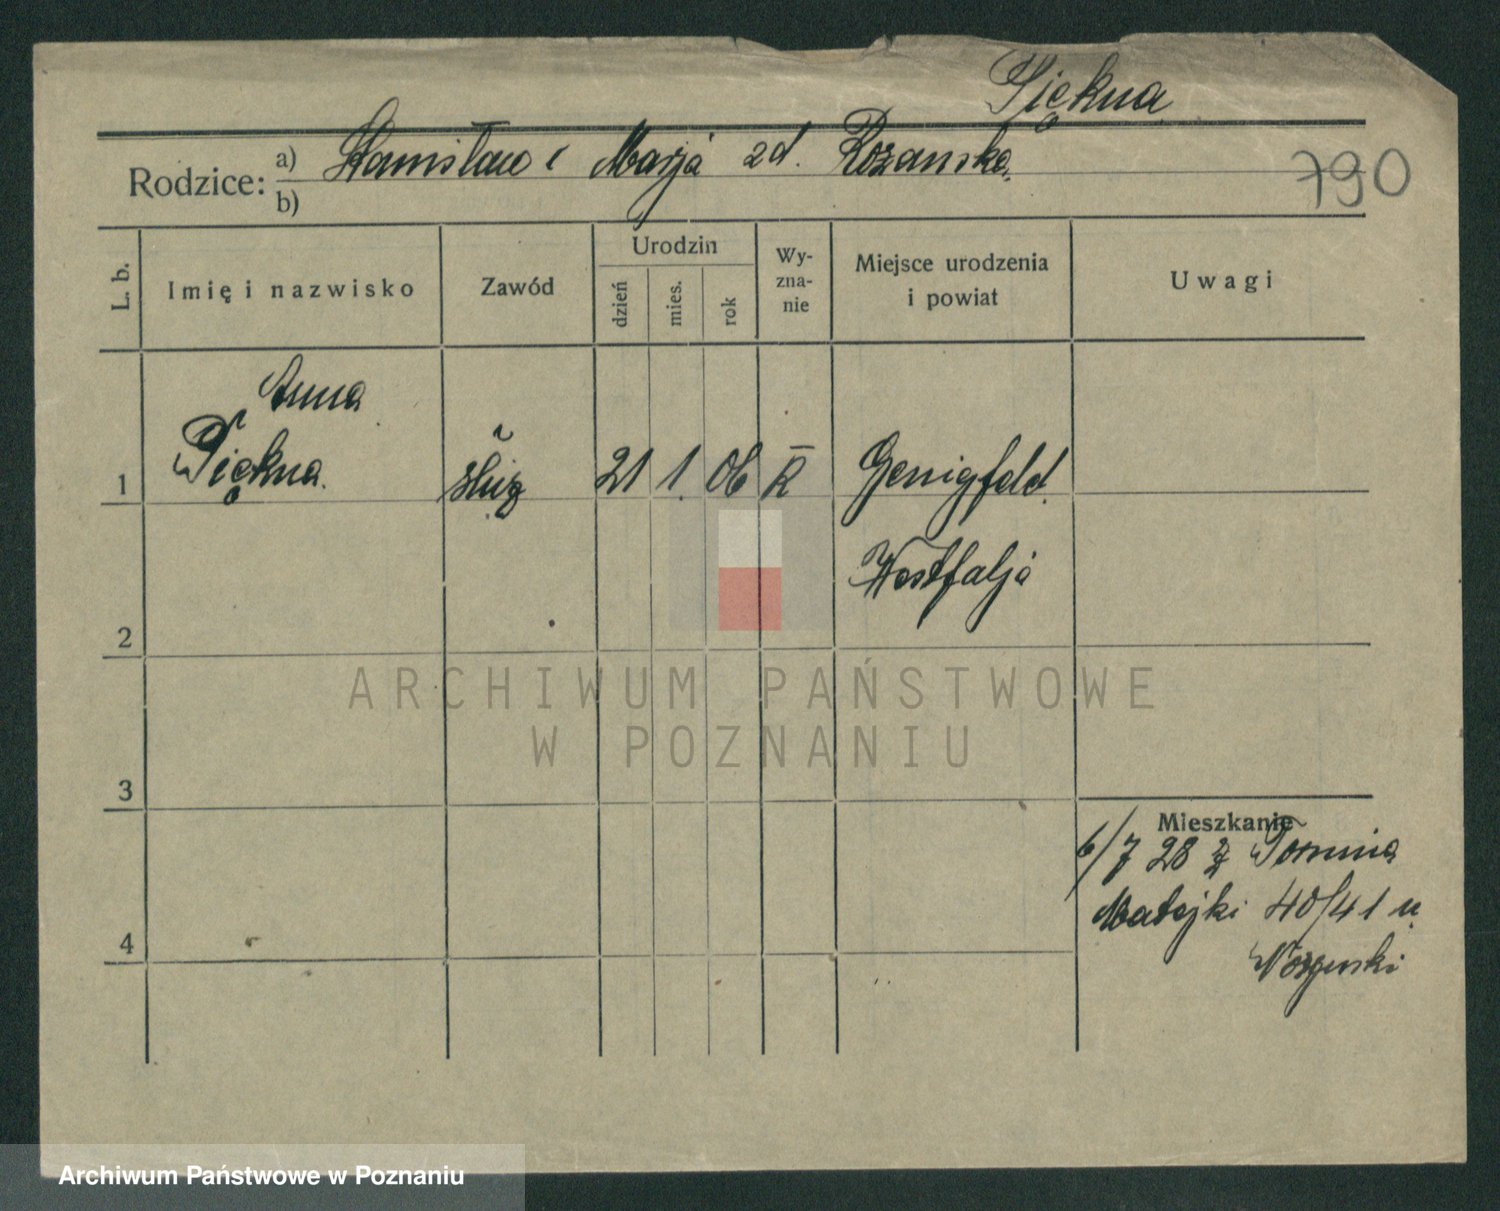 Piękna
Rodzice: a) Stanisław i Marja zd. Rozanska
b)
790
L. b.
Imię i nazwisko
Zawód
Urodzin
dzień
mies.
rok
Wy-
zna-
nie
Miejsce urodzenia
i powiat
Uwagi
Anna
1 Piękna służ 21 1. 06 K Genigfeld
Westfalja
2
ARCHIWUM PAŃSTWOWE
W POZNANIU
3
Mieszkanie
6/7 28 z Torunia
4 Matejki 40/41 u
Archiwum Państwowe w Poznaniu